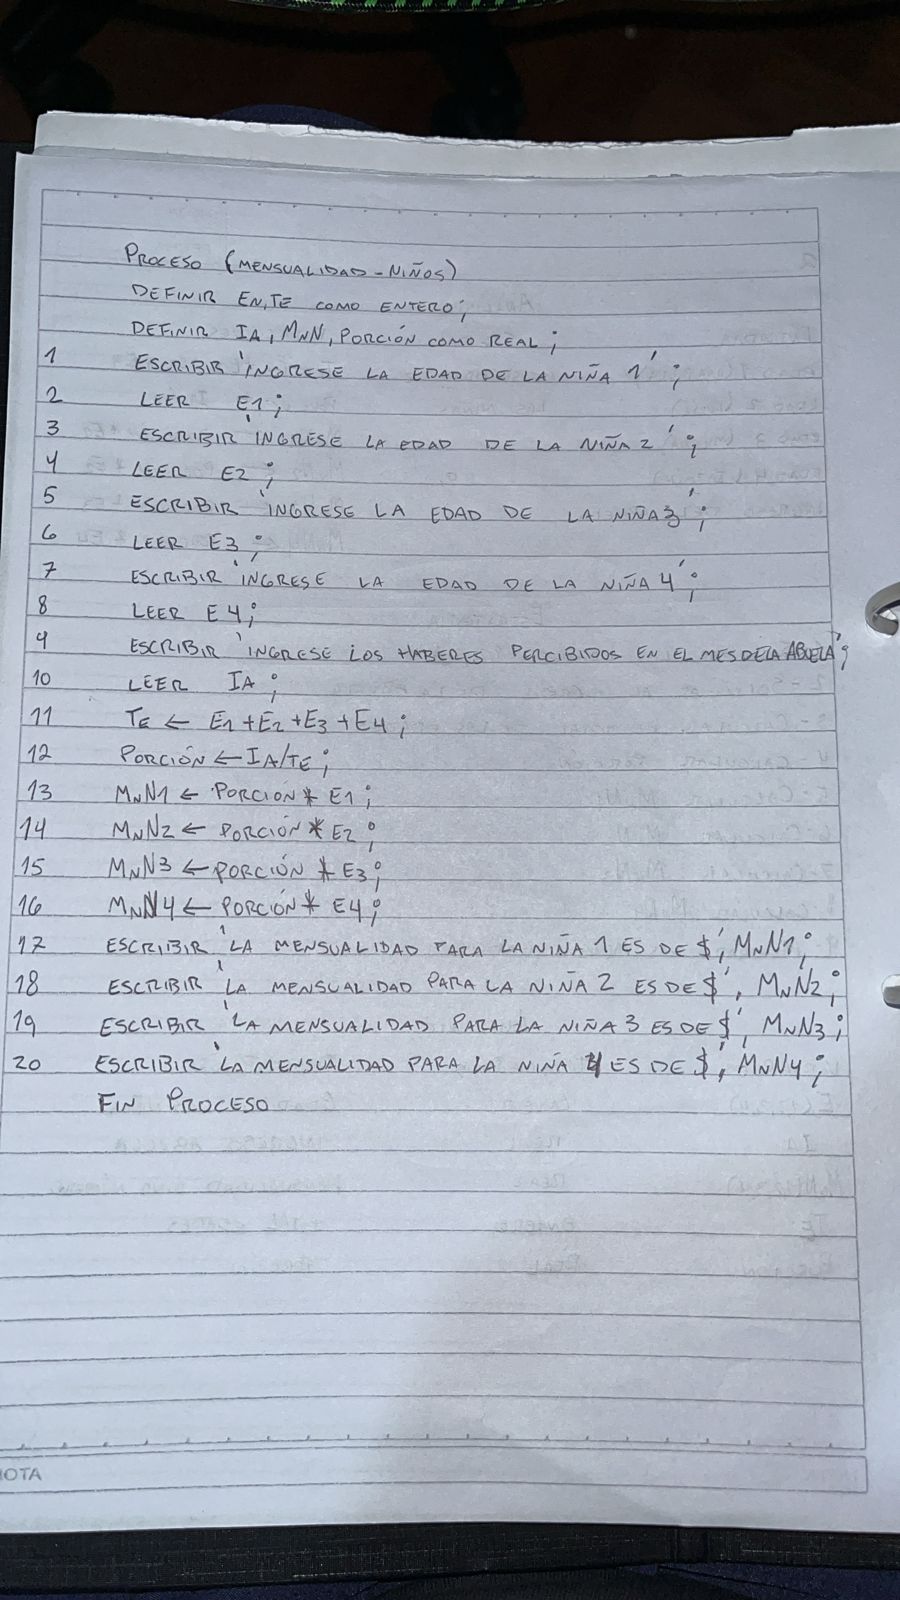 PROCESO (MENSUALIDAD-NIÑOS)
DEFINIR EN,TE COMO ENTERO;
DEFINIR IA, MNN, PORCIÓN COMO REAL;
1 ESCRIBIR 'INGRESE LA EDAD DE LA NIÑA 1';
2 LEER E1;
3 ESCRIBIR 'INGRESE LA EDAD DE LA NIÑA 2';
4 LEER E2;
5 ESCRIBIR 'INGRESE LA EDAD DE LA NIÑA 3';
6 LEER E3;
7 ESCRIBIR 'INGRESE LA EDAD DE LA NIÑA 4';
8 LEER E4;
9 ESCRIBIR 'INGRESE LOS HABERES PERCIBIDOS EN EL MES DE LA ABUELA';
10 LEER IA;
11 TE ← E1+E2+E3+E4;
12 PORCIÓN ← IA/TE;
13 MNN1 ← PORCION * E1;
14 MNN2 ← PORCIÓN * E2;
15 MNN3 ← PORCIÓN * E3;
16 MNN4 ← PORCIÓN * E4;
17 ESCRIBIR 'LA MENSUALIDAD PARA LA NIÑA 1 ES DE $', MNN1;
18 ESCRIBIR 'LA MENSUALIDAD PARA LA NIÑA 2 ES DE $', MNN2;
19 ESCRIBIR 'LA MENSUALIDAD PARA LA NIÑA 3 ES DE $', MNN3;
20 ESCRIBIR 'LA MENSUALIDAD PARA LA NIÑA 4 ES DE $', MNN4;
FIN PROCESO